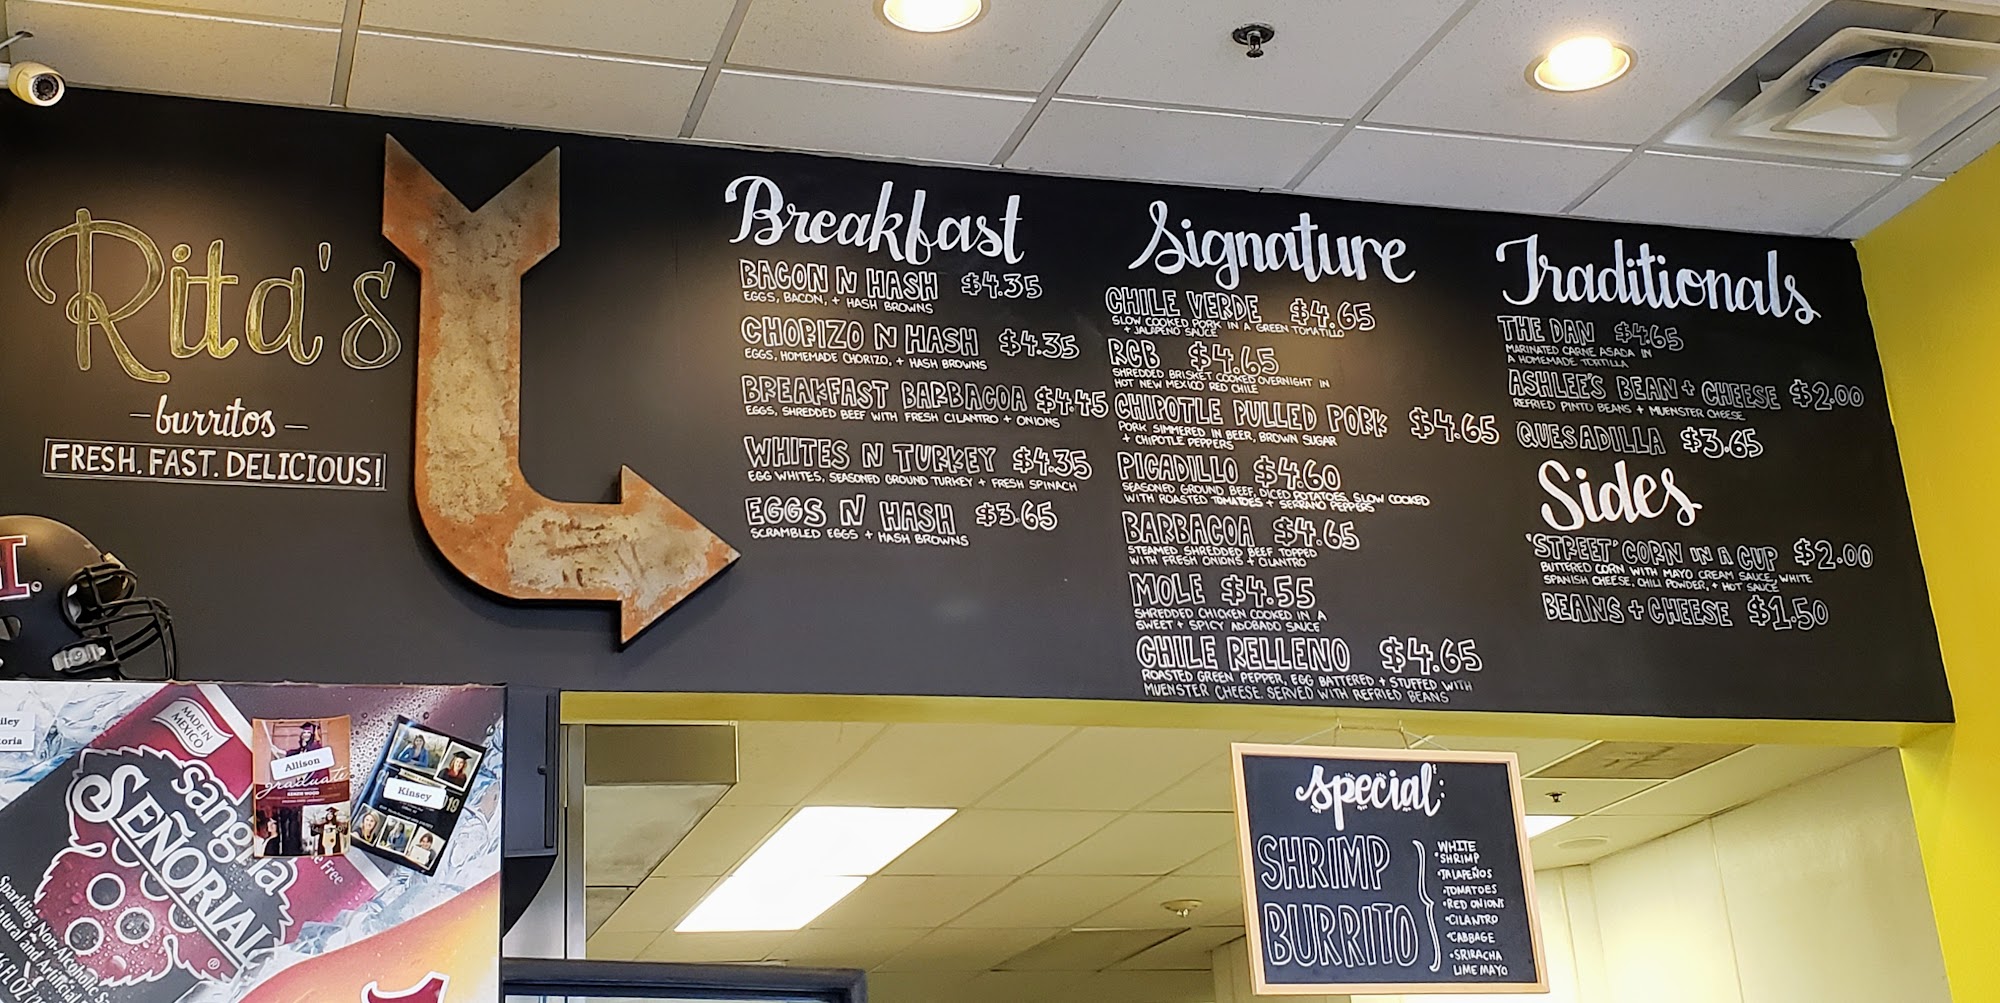 Rita's
- burritos -
FRESH. FAST. DELICIOUS!
Breakfast
BACON N HASH $4.35
EGGS, BACON, + HASH BROWNS
CHORIZO N HASH $4.35
EGGS, HOMEMADE CHORIZO, + HASH BROWNS
BREAKFAST BARBACOA $4.45
EGGS, SHREDDED BEEF WITH FRESH CILANTRO + ONIONS
WHITES N TURKEY $4.35
EGG WHITES, SEASONED GROUND TURKEY + FRESH SPINACH
EGGS N HASH $3.65
SCRAMBLED EGGS + HASH BROWNS
Signature
CHILE VERDE $4.65
SLOW COOKED PORK IN A GREEN TOMATILLO
+ JALAPENO SAUCE
RCB $4.65
SHREDDED BRISKET COOKED OVERNIGHT IN
HOT NEW MEXICO RED CHILE
CHIPOTLE PULLED PORK $4.65
PORK SIMMERED IN BEER, BROWN SUGAR
+ CHIPOTLE PEPPERS
PICADILLO $4.60
SEASONED GROUND BEEF, DICED POTATOES, SLOW COOKED
WITH ROASTED TOMATOES + SERRANO PEPPERS
BARBACOA $4.65
STEAMED SHREDDED BEEF TOPPED
WITH FRESH ONIONS + CILANTRO
MOLE $4.55
SHREDDED CHICKEN COOKED IN A
SWEET + SPICY ADOBADO SAUCE
CHILE RELLENO $4.65
ROASTED GREEN PEPPER, EGG BATTERED + STUFFED WITH
MUENSTER CHEESE. SERVED WITH REFRIED BEANS
Traditionals
THE DAN $4.65
MARINATED CARNE ASADA IN
A HOMEMADE TORTILLA
ASHLEE'S BEAN + CHEESE $2.00
REFRIED PINTO BEANS + MUENSTER CHEESE
QUESADILLA $3.65
Sides
'STREET' CORN IN A CUP $2.00
BUTTERED CORN WITH MAYO CREAM SAUCE, WHITE
SPANISH CHEESE, CHILI POWDER, + HOT SAUCE
BEANS + CHEESE $1.50
special:
SHRIMP
BURRITO
WHITE
• SHRIMP
• JALAPEÑOS
• TOMATOES
• RED ONIONS
• CILANTRO
• CABBAGE
• SRIRACHA
LIME MAYO
MADE IN
MEXICO
sangria
SEÑORIAL
®
Allison
graduate
Kinsey
19
Sparkling Non-Alcoholic